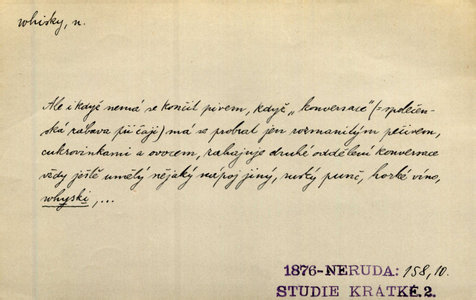 whisky, n.
Ale i když nemá se končit pivem, když „konversace“ (= společen-
ská zábava při čaji) má se probrat jen rozmanitým pečivem,
cukrovinkami a ovocem, zahajuje druhé oddělení konversace
vždy ještě umělý nějaký nápoj jiný, ruský punč, horké víno,
whyski, ...
1876-NERUDA: 158, 10.
STUDIE KRÁTKÉ.2.